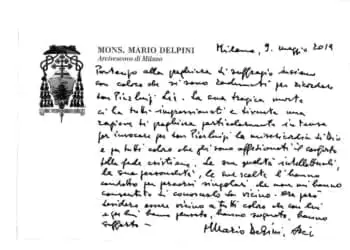 MONS. MARIO DELPINI
Arcivescovo di Milano
Milano, 9. maggio 2019
Partecipo alla preghiera di suffragio insieme
con coloro che si sono radunati per ricordare
don Pierluigi Lia. La sua tragica morte
ci ha tutti impressionati e diventa una
ragione di preghiera particolarmente intensa
per invocare per don Pierluigi la misericordia di Dio
e per tutti coloro che gli sono affezionati il conforto
della fede cristiana. Le sue qualità intellettuali,
la sua personalità, le sue scelte l'hanno
condotto per percorsi singolari che non mi hanno
consentito di conoscerlo da vicino. Ora però
desidero essere vicino a tutti coloro che con lui
e per lui hanno pensato, hanno sognato, hanno
sofferto -
+ Mario Delpini, Aci